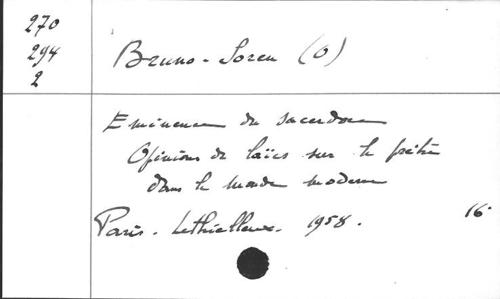 270
294
2
Bruno-Soren (O)
Eminence du sacerdoce
Opinions de laïcs sur le prêtre
dans le monde moderne
Paris. Lethielleux. 1958. 16°